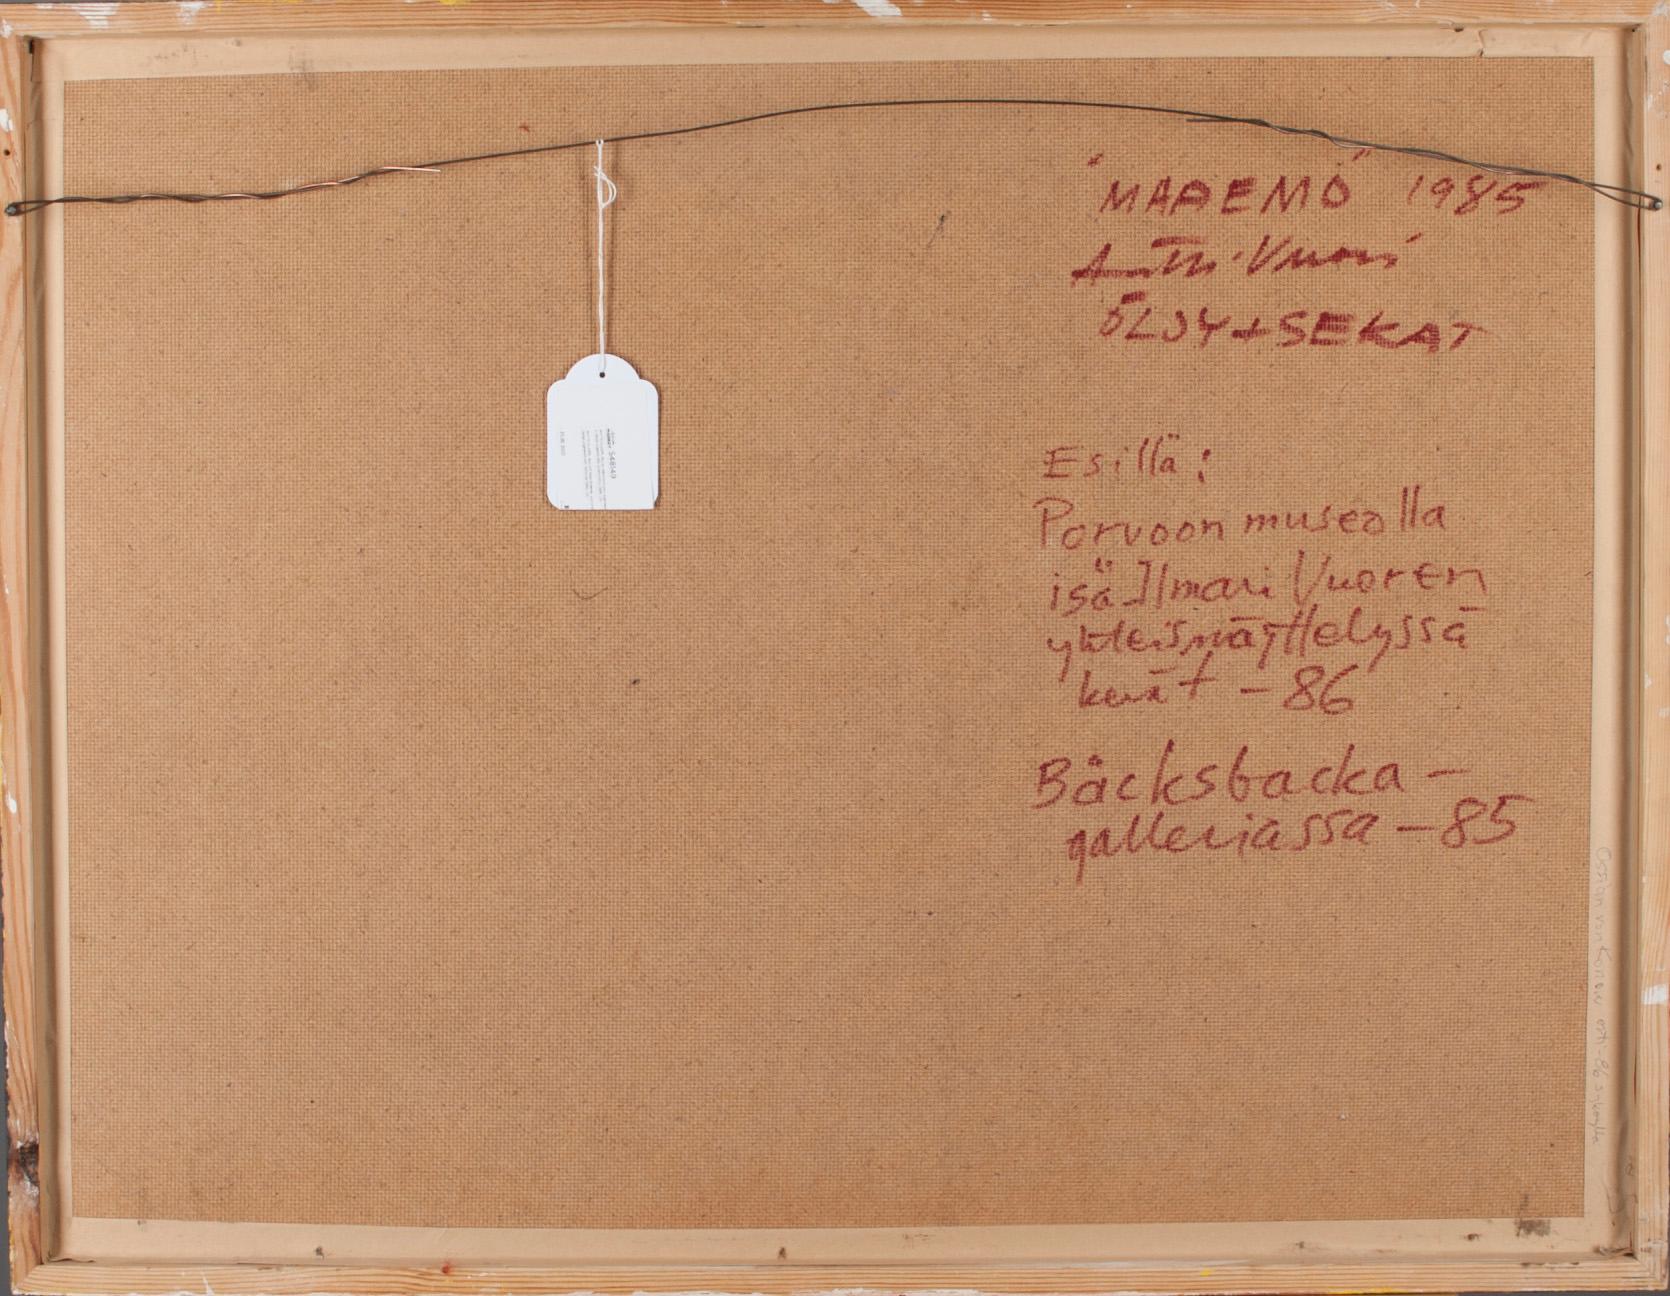 "MAAEMO" 1985
Antti Vuori
ÖLJY+SEKAT
Esillä:
Porvoon museolla
isä Ilmari Vuoren
yhteisnäyttelyssä
kevät -86
Bäcksbacka-
galleriassa -85
548149